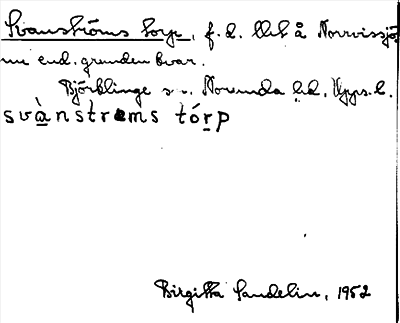 Svanströms torp, f.d. tlht å Norrvissjö,
nu end. grunden kvar.
Björklinge sn. Norunda hd. Upps. l.
svànstrems tórp
Birgitta Sandelin, 1952